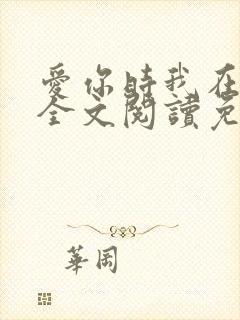 愛你時我在
全文閱讀免
華岡